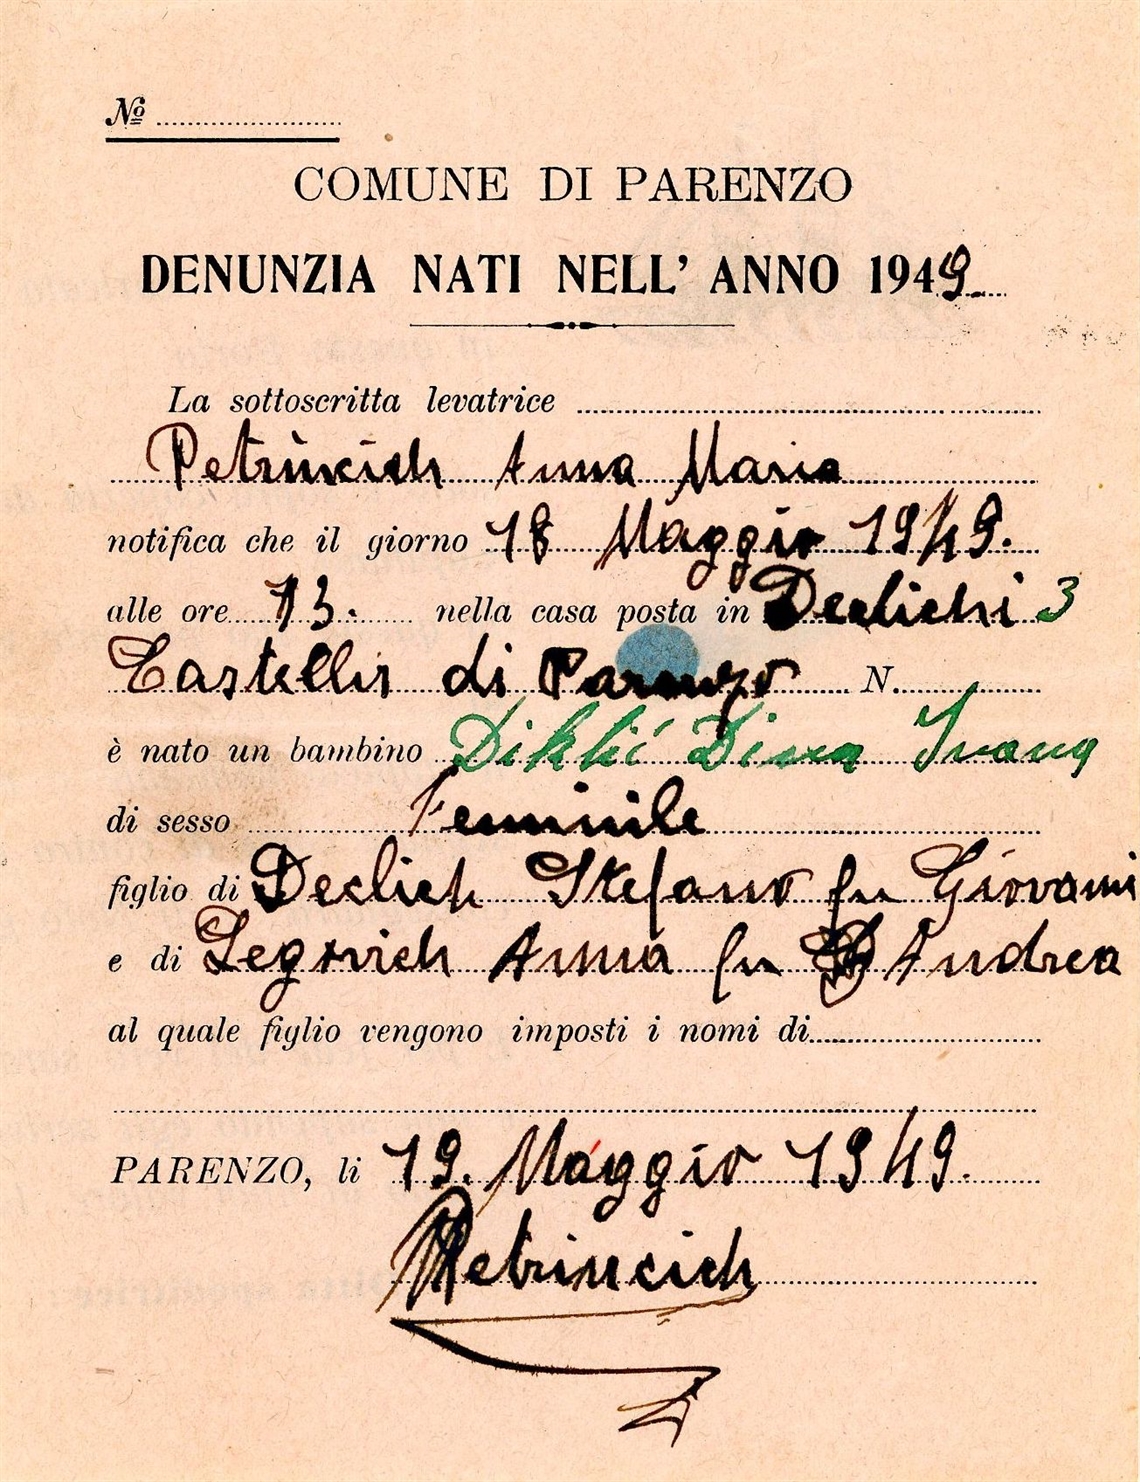 No
COMUNE DI PARENZO
DENUNZIA NATI NELL' ANNO 1949
La sottoscritta levatrice
Petrincich Anna Maria
notifica che il giorno 18 Maggio 1949.
alle ore 13. nella casa posta in Declichi 3
Castellir di Parenzo N.
è nato un bambino Diklić Dina Ivana
di sesso Feminile
figlio di Declich Stefano fu Giovanni
e di Legovich Anna fu Andrea
al quale figlio vengono imposti i nomi di
PARENZO, li 19. Maggio 1949.
Petrincich